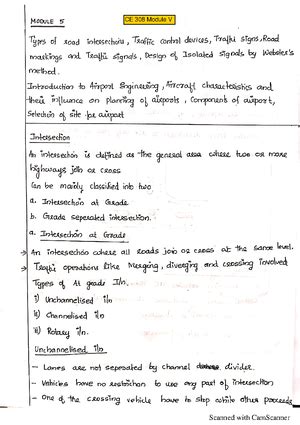 MODULE 5
CE 308 Module V
Types of road intersections, Traffic control devices, Traffic signs, Road
markings and Traffic signals, Design of Isolated signals by Webster's
method.
Introduction to Airport Engineering, Aircraft characteristics and
their influence on planning of airports, Component of airport,
Selection of site for airport
Intersection
An intersection is defined as the general area where two or more
highways join or cross
Can be mainly classified into two
a. Intersection at Grade
b. Grade seperated intersection.
a. Intersection at Grade
→ An intersection where all roads join or cross at the same level.
→ Traffic operations like Merging, diverging and crossing involved
Types of At grade I/n.
i) Unchannelised i/n
ii) Channelised i/n
iii) Rotary i/n.
Unchannelised i/n
- Lanes are not seperated by channel divider.
- Vehicles have no restriction to use any part of intersection
- One of the crossing vehicle have to stop while other proceeds
Scanned with CamScanner